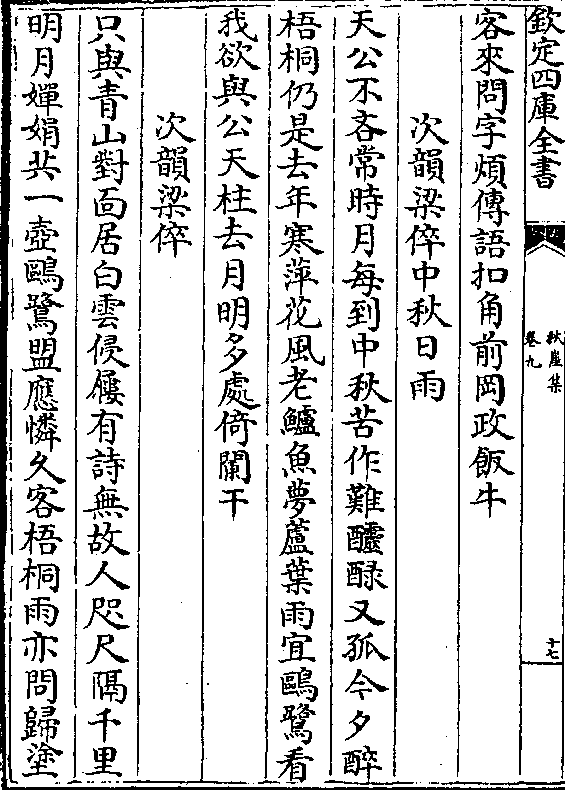 欽定四庫全書
秋崖集
卷九
十七
客來問字煩傳語扣角前岡政飯牛
次韻梁倅中秋日雨
天公不吝常時月每到中秋苦作難醽醁又孤今夕醉
梧桐仍是去年寒萍花風老鱸魚夢蘆葉雨宜鷗鷺看
我欲與公天柱去月明多處倚闌干
次韻梁倅
只與青山對面居白雲候屨有詩無故人咫尺隔千里
明月嬋娟共一壺鷗鷺盟應憐久客梧桐雨亦問歸塗